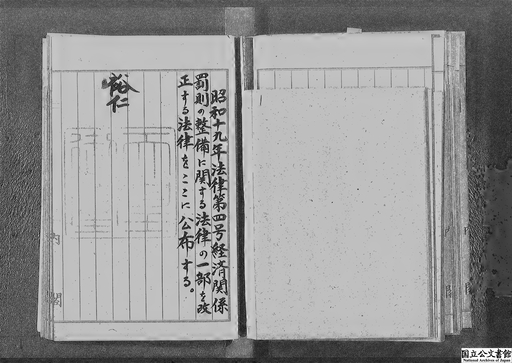 昭和十九年法律第四号経済関係
罰則の整備に関する法律の一部を改
正する法律をここに公布する。
裕仁
内閣
国立公文書館
National Archives of Japan